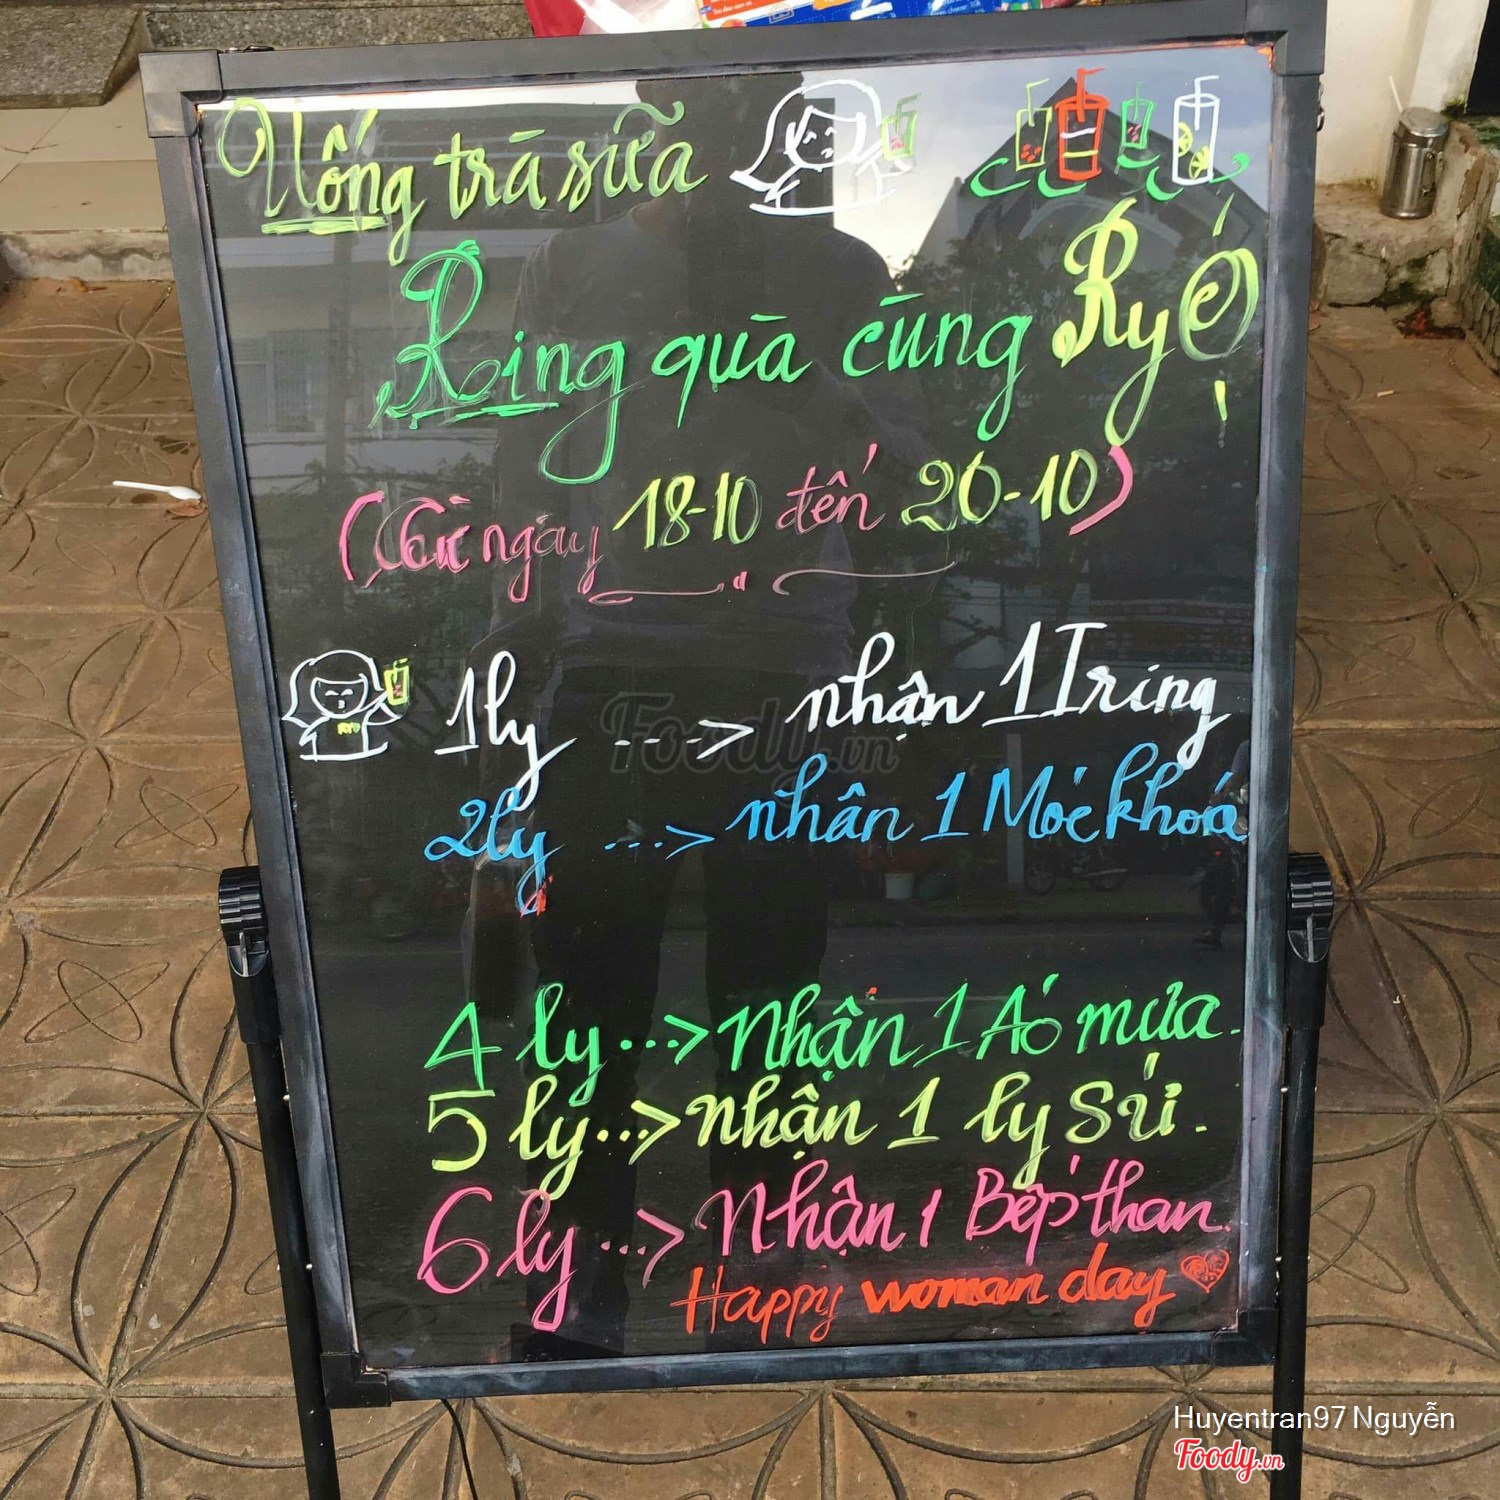 Uống trà sữa
Ring quà cùng Ryo
(Từ ngày 18-10 đến 20-10)
1 ly ---> nhận 1 Iring
2 ly ...> nhân 1 Móc khoá
4 ly ...> Nhận 1 Áo mưa.
5 ly ...> nhận 1 ly Sứ.
6 ly ...> Nhận 1 Bếp than
Happy woman day
Foody.vn
Huyentran97 Nguyễn
Foody.vn